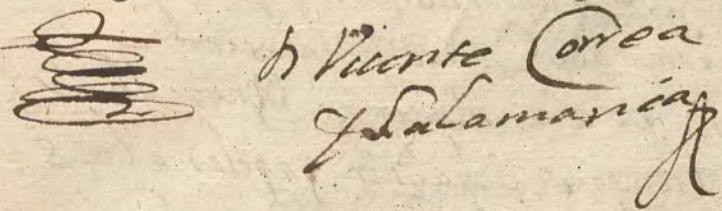 D Vicente Correa
y Salamanca